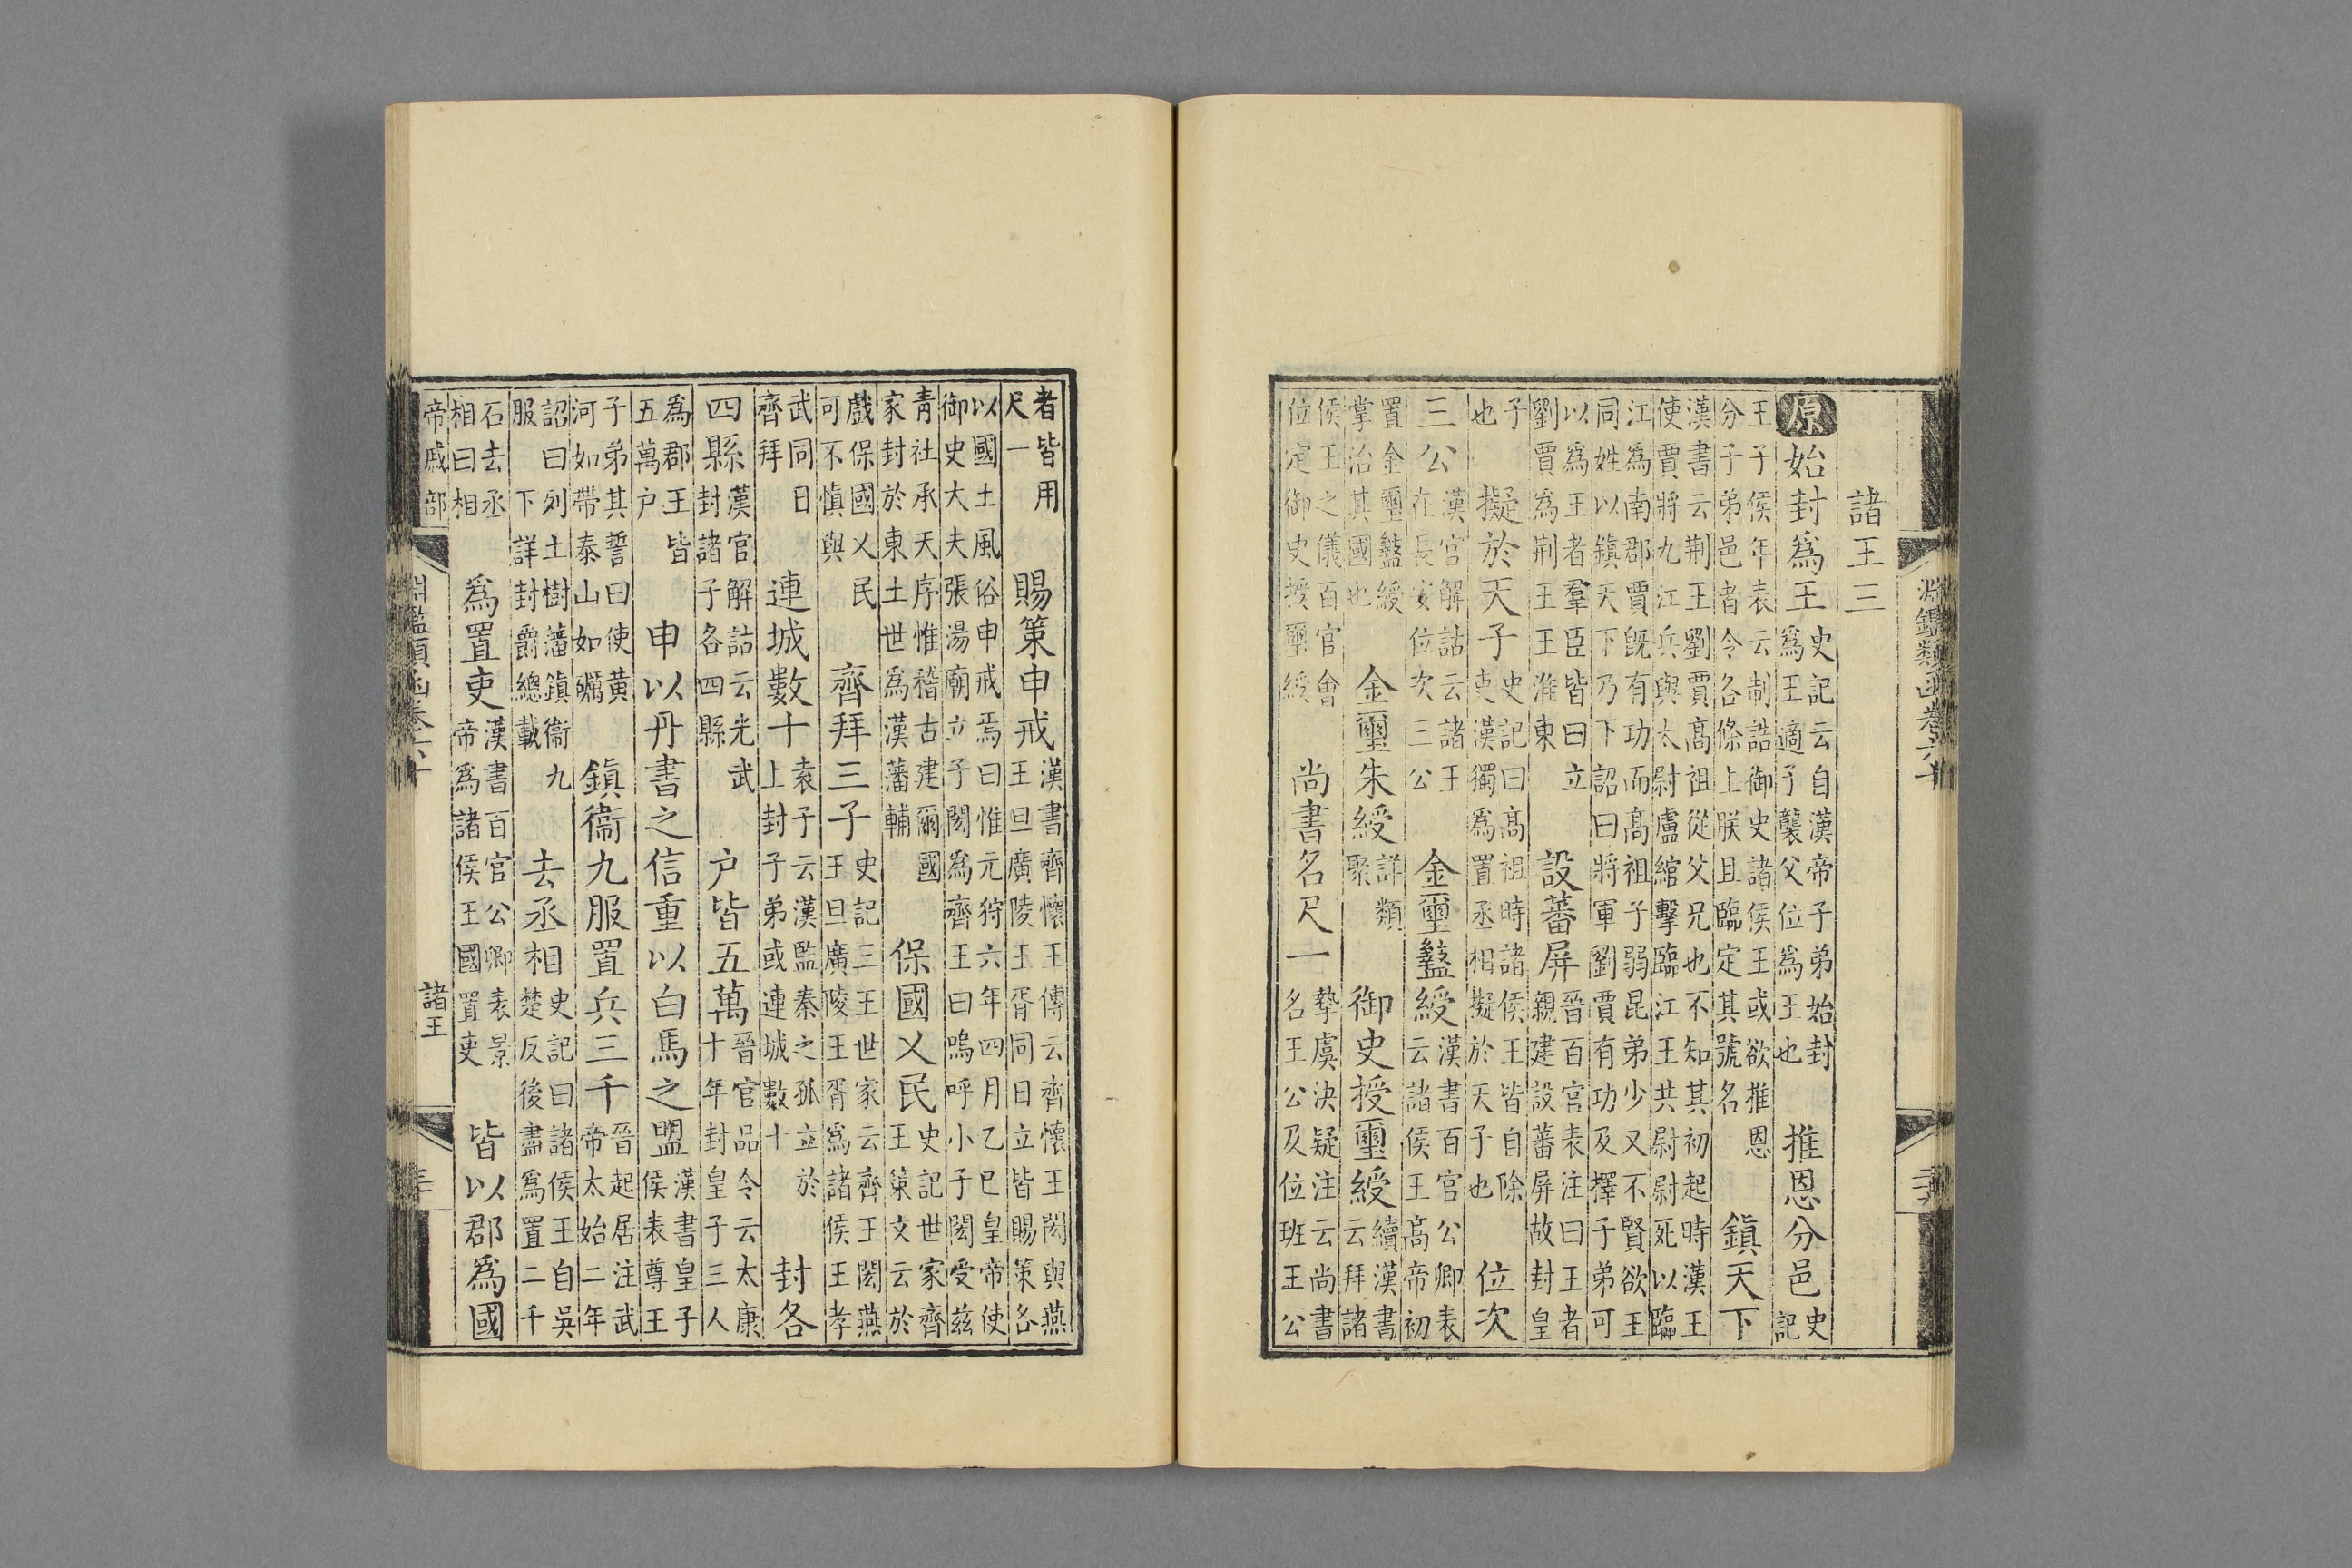 淵鑑類函卷六十
諸王三
原始封爲王史記云自漢帝子弟始封爲王適子襲父位爲王也推恩分邑史記
王子侯年表云制詔御史諸侯王或欲推恩分子弟邑者令各條上朕且臨定其號名鎮天下
漢書云荆王王劉賈高祖從父兄也不知其初起時漢王使賈將九江兵與太尉盧綰擊臨江王共尉尉死以臨
江爲南郡賈旣有功而高祖子弱昆弟少又不賢欲王同姓以鎮天下乃下詔曰將軍劉賈有功及擇子弟可
以爲王者羣臣皆曰立劉賈爲荆王王淮東設蕃屏晉百官表注曰王者親建設蕃屏故封皇
子也擬於天子史記曰高祖時諸侯王皆自除吏漢獨爲置丞相擬於天子也位次
三公漢官解詁云諸王在長安位次三公金璽盭綬漢書百官公卿表云諸侯王高帝初
置金璽盭綬掌治其國也金璽朱綬詳類聚御史授璽綬續漢書云拜諸
侯王之儀百官會位定御史授璽綬尚書名尺一摯虞決疑注云尚書名王公及位班王公
者皆用尺一賜策申戒漢書齊懷王傳云齊懷王閎與燕王旦廣陵王胥同日立皆賜策各
以國土風俗申戒焉曰惟元狩六年四月乙巳皇帝使御史大夫張湯廟立子閎爲齊王曰嗚呼小子閎受兹
青社承天序惟稽古建爾國家封於東土世爲漢藩輔保國乂民史記世家齊王策文云於
戲保國乂民可不慎與齊拜三子史記三王世家云齊王閎燕王旦廣陵王胥爲諸侯王孝
武同日齊拜連城數十袁子云漢監秦之孤立於上封子子弟或連城數十封各
四縣漢官解詁云光武封諸子各四縣户皆五萬晉官品令云太康十年封皇子三人
爲郡王皆五萬户申以丹書之信重以白馬之盟漢書皇子侯表尊王
子弟其誓曰使黃河如帶泰山如礪鎮衞九服置兵三千晉起居注武帝太始二年
詔曰列土樹藩鎮衞九服下詳封爵總載去丞相史記曰諸侯王自吳楚反後盡爲置二千
石去丞相曰相爲置吏漢書百官公卿表景帝爲諸侯王國置吏皆以郡爲國
帝戚部 淵鑑類函卷六十 諸王